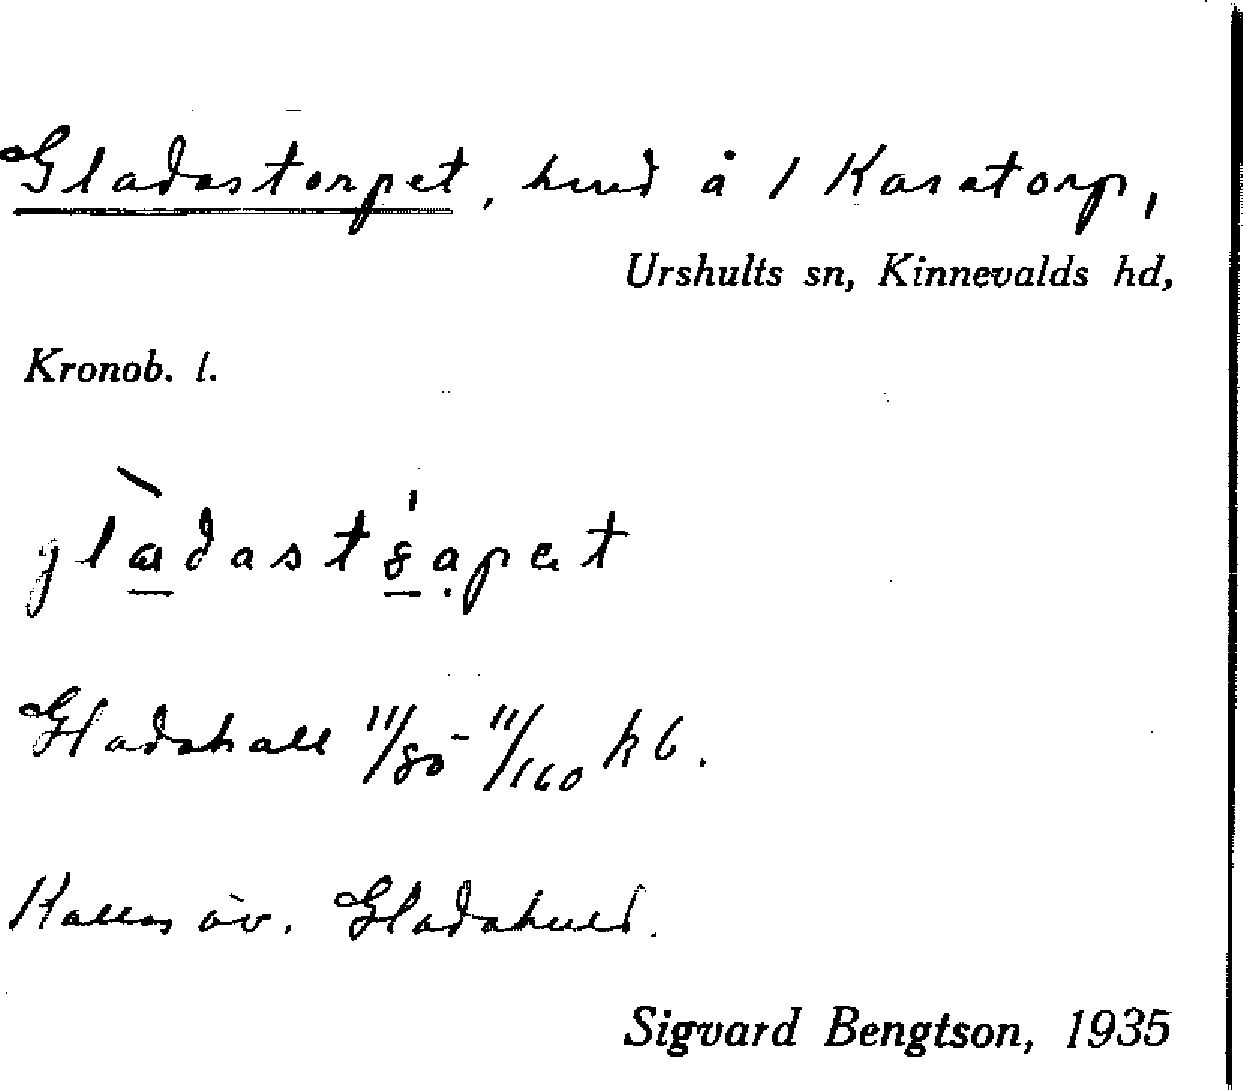 Gladastorpet, hmd å 1 Karatorp,
Urshults sn, Kinnevalds hd,
Kronob. l.
Gladahall 11/80 - 11/160 kb.
Kallas äv. Gladahuld.
Sigvard Bengtson, 1935